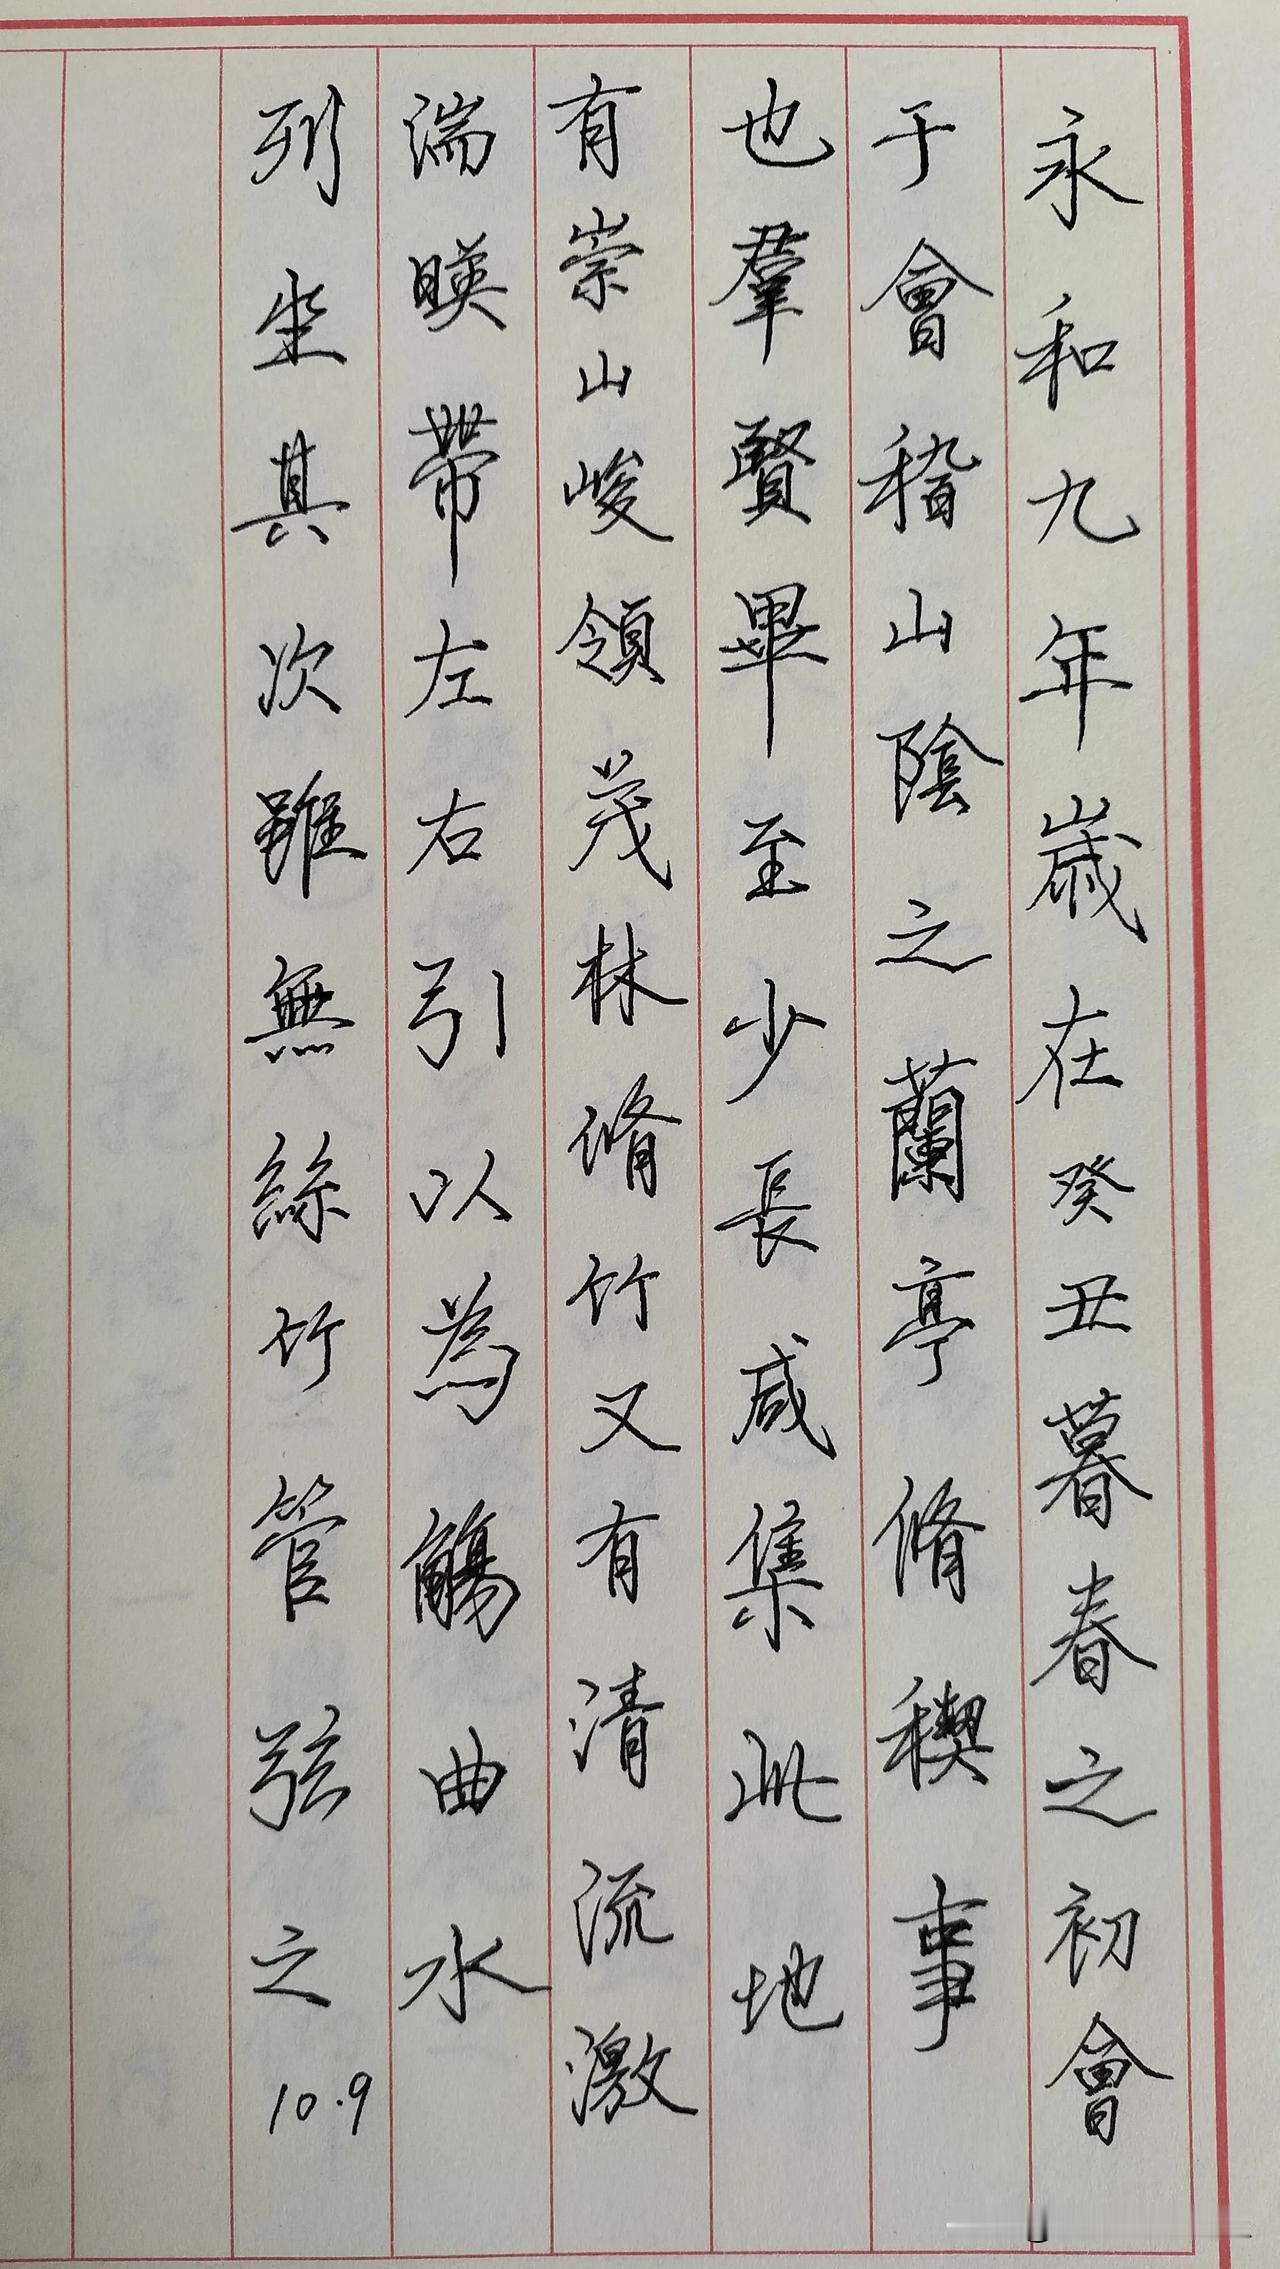 永和九年歲在癸丑暮春之初會
于會稽山陰之蘭亭脩稧事
也羣賢畢至少長咸集此地
有崇山峻領茂林脩竹又有清流激
湍暎帶左右引以為觴曲水
列坐其次雖無絲竹管弦之
10.9